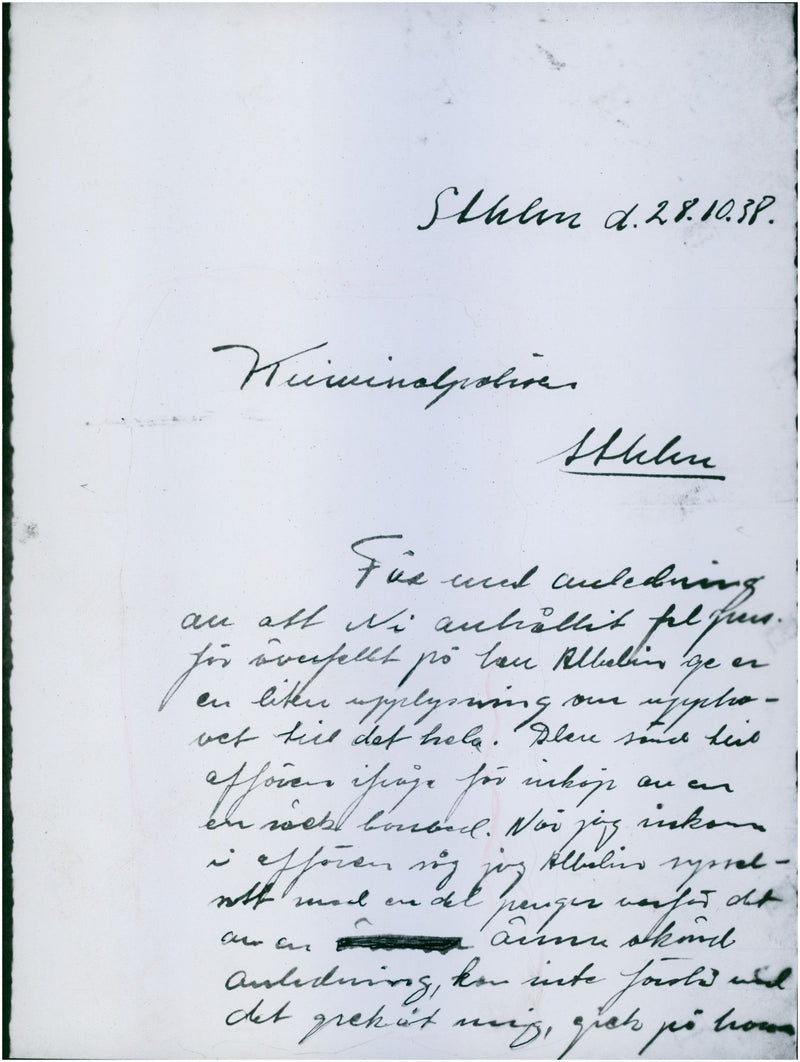 Sthlm d. 28.10.38.
Kriminalpolisen
Sthlm
Får med anledning
av att Ni anhållit fel pers.
för överfallet på herr Albelin ge er
en liten upplysning om uppho-
vet till det hela. Blev sänd till
affären ifråga för inköp av en
en säck bomull. När jag inkom
i affären såg jag Albelin syssel-
satt med en del pengar varför det
av en ännu okänd
anledning, kan inte förstå vad
det grek åt mig, gick på honom